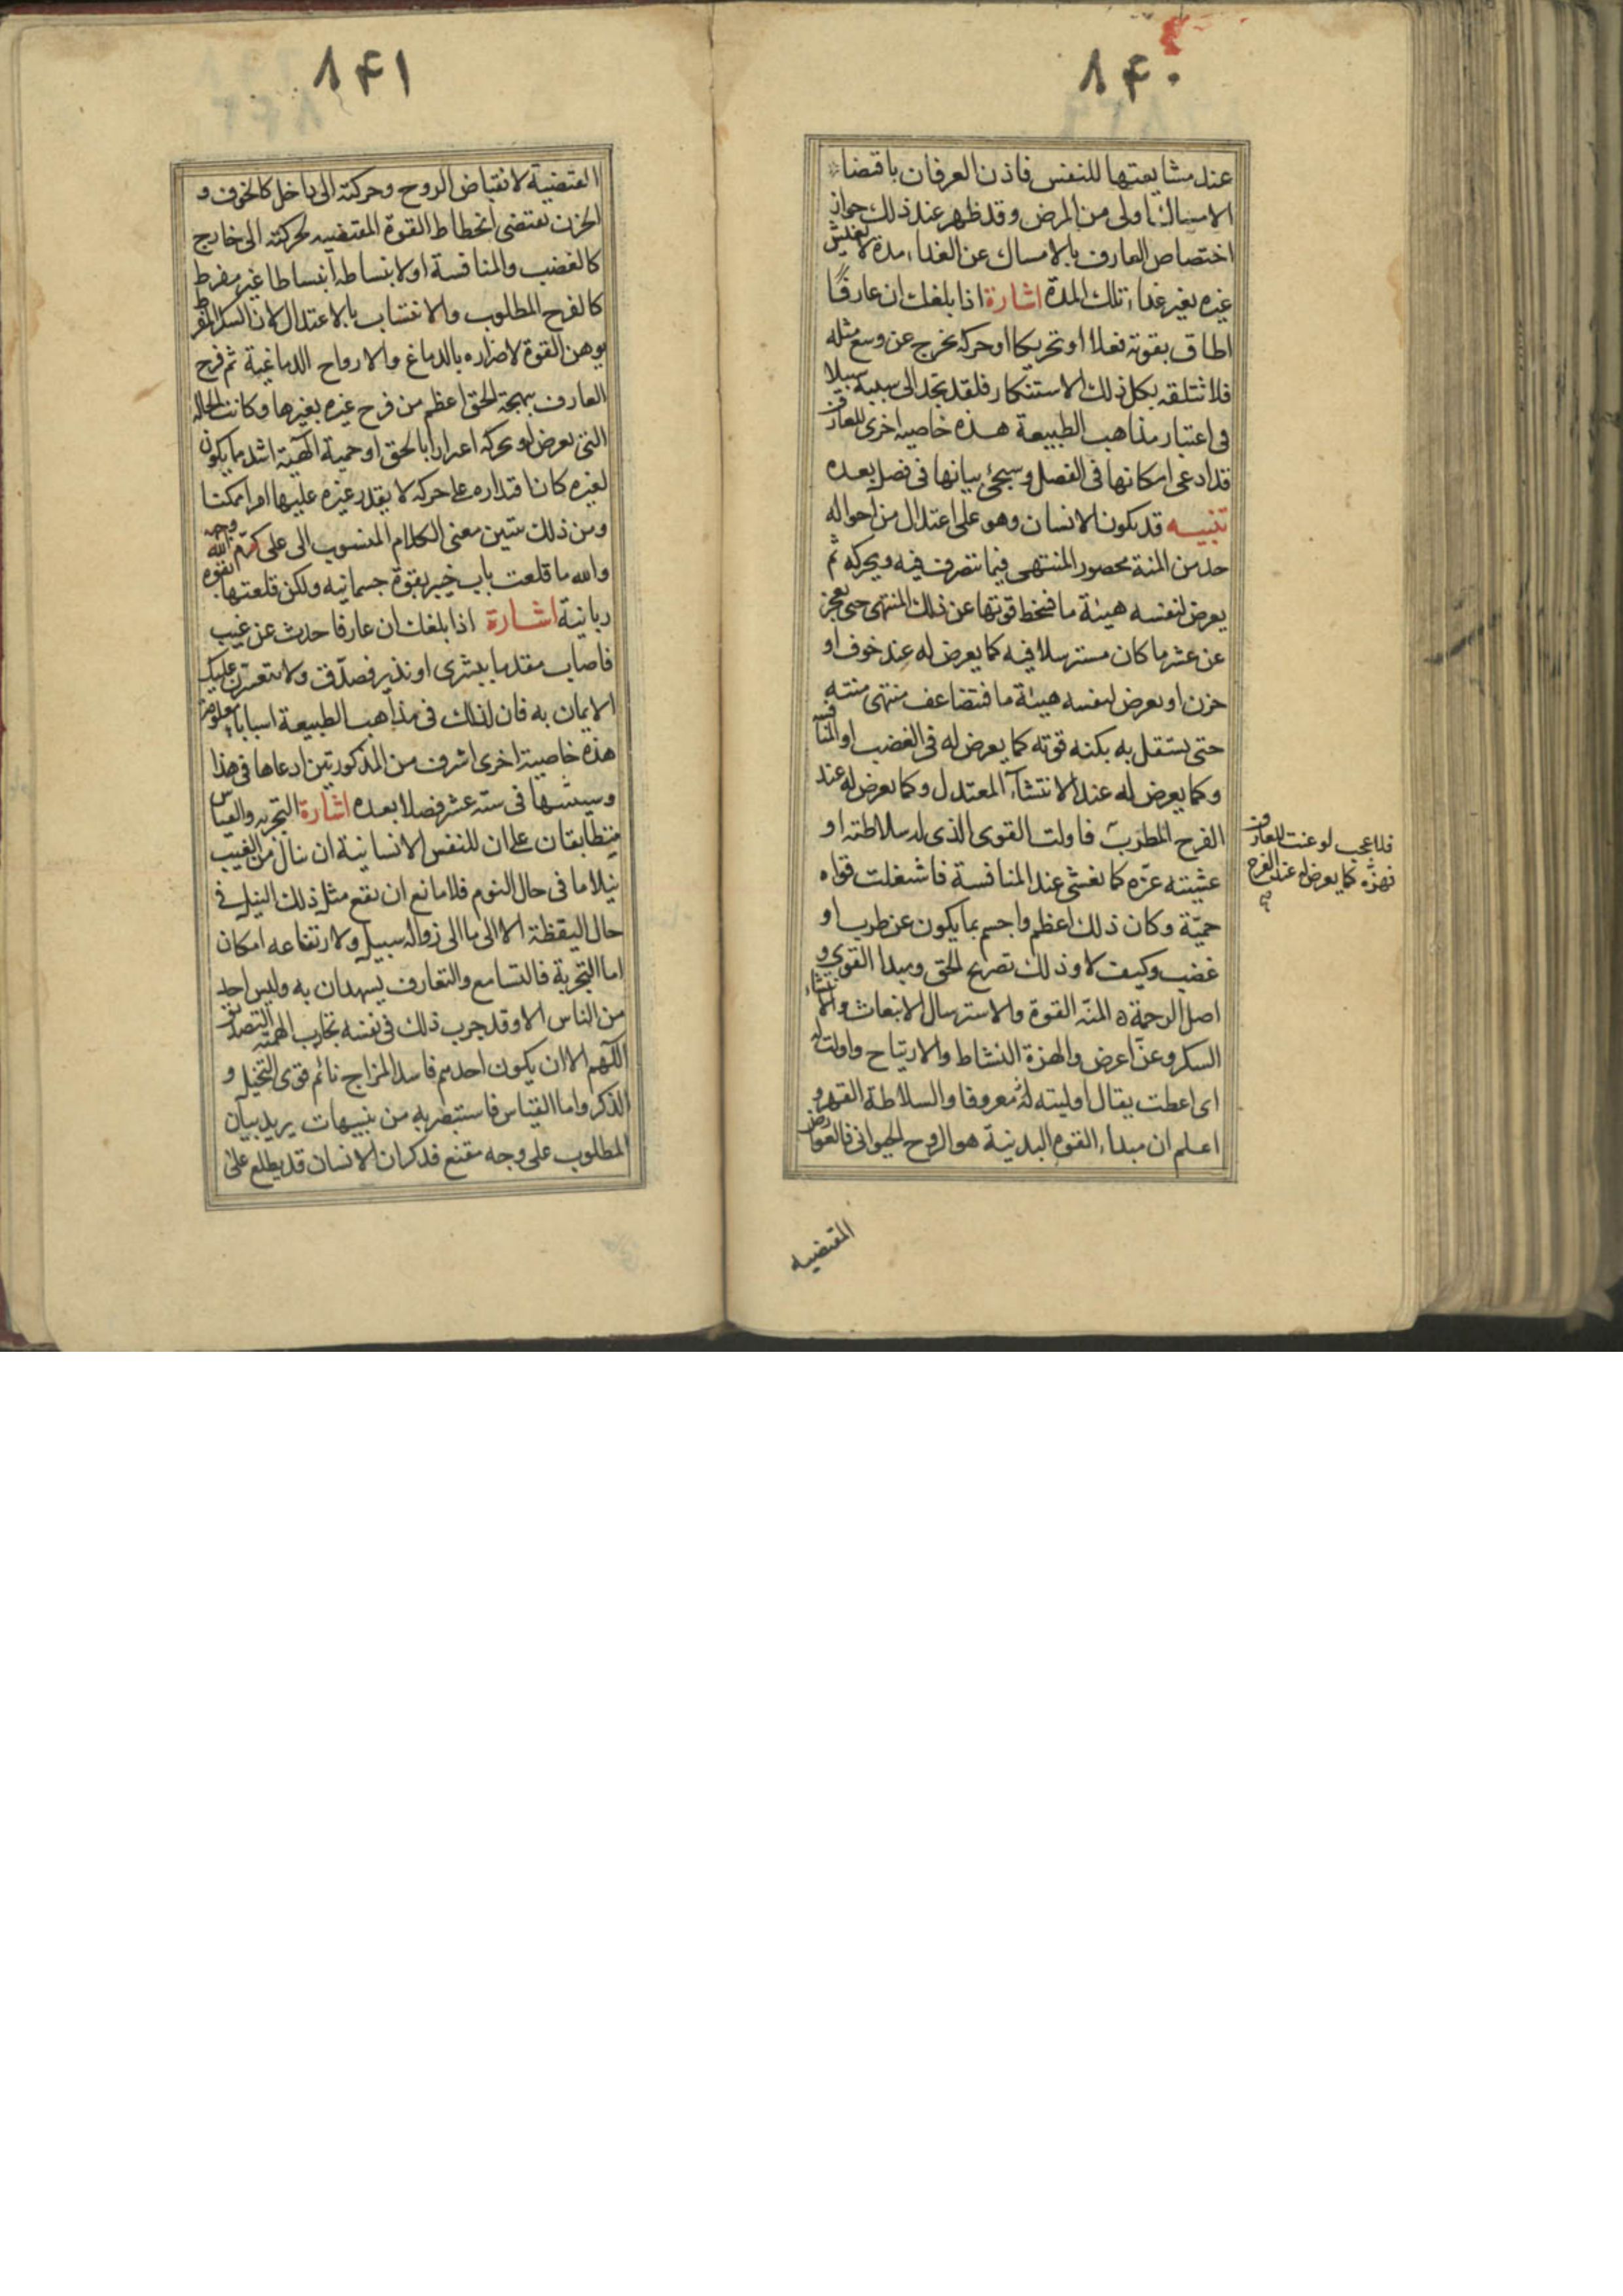 ١۴٠
عند مشايعتها للنفس فاذن العرفان باقتضاء
الامساك اولى من المرض وقد ظهر عند ذلك جواز
اختصاص العارف بالامساك عن الغذاء مدة لا يعيش
غيره بغير غذاء تلك المدة اشارة اذا بلغك ان عارفا
اطاق بقوته فعلا او تحريكا او حركة يخرج عن وسع مثله
فلا تتلقه بكل ذلك الاستنكار فلقد تجد الى سببه سبيلا
فى اعتبار مذاهب الطبيعة هذه خاصية اخرى للعارف
قد ادعى امكانها فى الفصل وسيجئ بيانها فى فصل بعده
تنبيه قد يكون الانسان وهو على اعتدال من احواله
حد من المنة محصور المنتهى فيما نتصرف فيه ويحركه ثم
يعرض لنفسه هيئة ما فتحط قوتها عن ذلك المنتهى حتى يعجز
عن عشر ما كان مسترسلا فيه كما يعرض له عند خوف او
حزن او يعرض لنفسه هيئة ما فتضاعف منتهى منته
حتى يستقل به بكنه قوته كما يعرض له فى الغضب او المنافسة
وكما يعرض له عند الانتشاء المعتدل وكما يعرض له عند
الفرح المطرب فاولت القوى الذى له سلاطة او
غشيته عزه كما يغشى عند المنافسة فاشتغلت قواه
حميّة وكان ذلك اعظم واجسم بما يكون عن طرب او
غضب وكيف لا وذلك تصريح الحق ومبدا القوى و
اصل الرحمة ه المنة القوة والاسترسال الانبعاث والانتشاء
السكر وعنّ اعرض والهزة النشاط والارتياح واولت له
اى اعطت يقال اوليته له معروفا والسلاطة القهر و
اعلم ان مبداء القوى البدنية هو الروح الحيوانى فالعوارض
فلا عجب لو عنت للعارف
نهزّه كما يعرض له عند الفرح
المقتضيه
١۴١
المقتضية لانقباض الروح وحركته الى داخل كالخوف و
الحزن يقتضى انحطاط القوة المقتضيه لحركته الى خارج
كالغضب والمنافسة او لانبساطه انبساطا غير مفرط
كالفرح المطلوب والانتشاب بالاعتدال لان السكر المفرط
يوهن القوة لاضراره بالدماغ والارواح الدماغية ثم فرح
العارف ببهجة الحق اعظم من فرح غيره بغيرها وكانت الحالة
التى يعرض له ويحركه اعزازا بالحق او حمية الهية اشد ما يكون
لغيره كان اقتداره على حركة لا يقدر غيره عليها امرا ممكنا
ومن ذلك يتبين معنى الكلام المنسوب الى على كرّم الله وجهه
والله ما قلعت باب خيبر بقوة جسمانية ولكن قلعتها بقوة
ربانية اشارة اذا بلغك ان عارفا حدث عن غيب
فاصاب مقدما ببشرى او نذير فصدّق ولا يتعسرن عليك
الايمان به فان لذلك فى مذاهب الطبيعة اسبابا معلومة
هذه خاصية اخرى اشرف من المذكورتين ادعاها فى هذا
وسيبينها فى ستة عشر فصلا بعده اشارة التجربه والقياس
متطابقان على ان للنفس الانسانية ان ينال من الغيب
نيلا ما فى حال النوم فلا مانع ان يقع مثل ذلك النيل فى
حال اليقظة الا الى ما الى زواله سبيل ولارتفاعه امكان
اما التجربة فالتسامع والتعارف يشهدان به وليس احد
من الناس الا وقد جرب ذلك فى نفسه تجارب الهمته التصديق
اللهم الا ان يكون احدهم فاسد المزاج نائم قوى التخيل و
الذكر واما القياس فاستبصر به من تنبيهات يريد بيان
المطلوب على وجه مقنع فذكر ان الانسان قد يطلع على